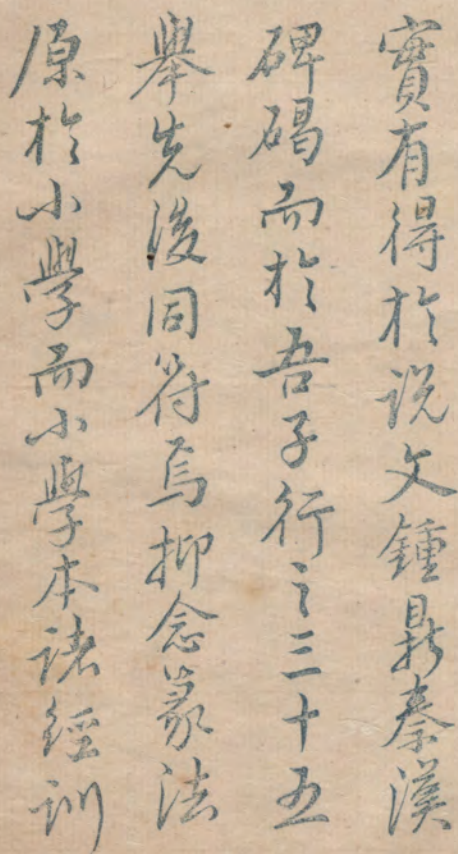 實有得於說文鍾鼎秦漢
碑碣而於吾子行之三十五
舉先後同符焉抑念篆法
原於小學而小學本諸經訓